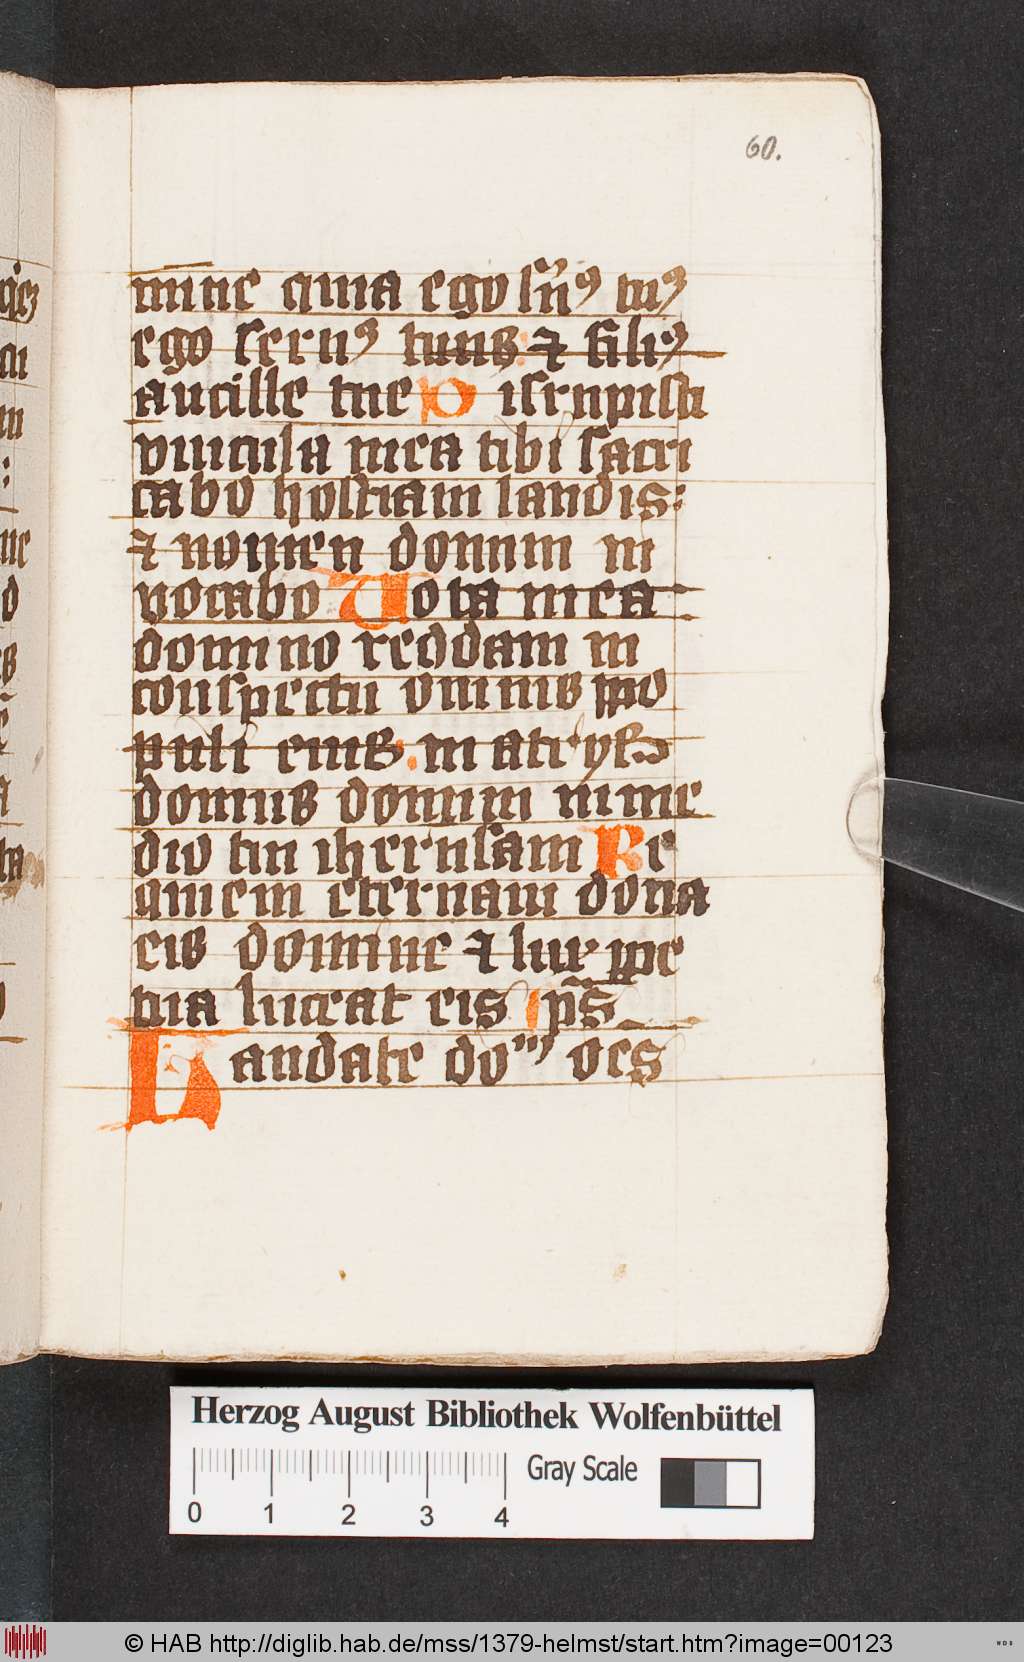 60.
mine quia ego ẜuꝰ tuꝰ
ego seruꝰ tuus: ⁊ filiꝰ
ancille tue Disrupisti
vincula mea tibi sacri
cabo hostiam laudis:
⁊ nomen domini in
vocabo Uota mea
domino reddam in
conspectu omnis ppo
puli eius: in atrijs
domus domini in me
dio tui iherusalem Re
quiem eternam dona
eis domine ⁊ lux ppe
tua luceat eis ps̄
Laudate do oēs
Herzog August Bibliothek Wolfenbüttel
Gray Scale
0 1 2 3 4
© HAB http://diglib.hab.de/mss/1379-helmst/start.htm?image=00123